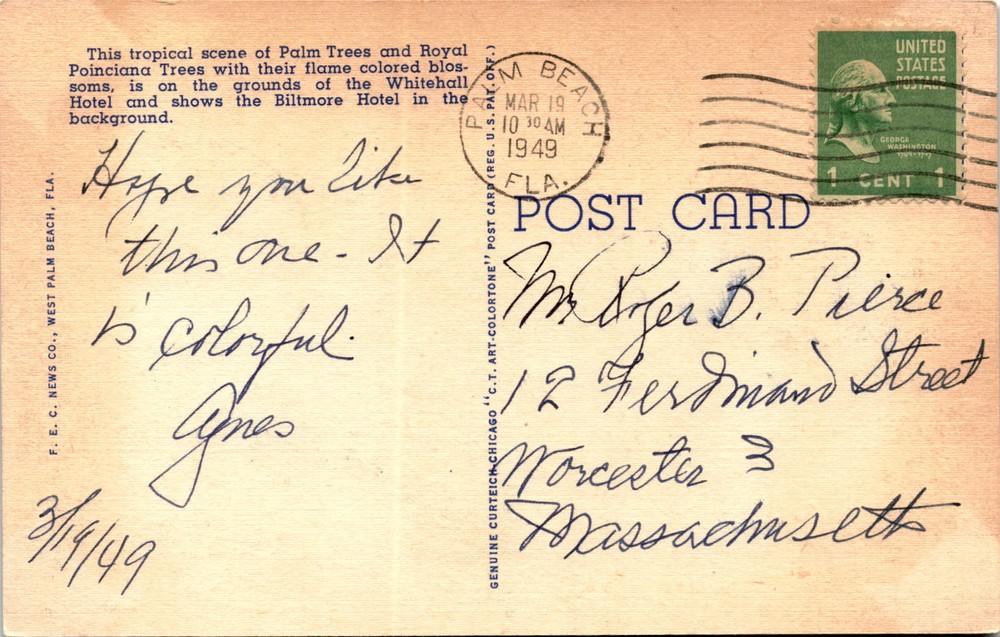 This tropical scene of Palm Trees and Royal
Poinciana Trees with their flame colored blos-
soms, is on the grounds of the Whitehall
Hotel and shows the Biltmore Hotel in the
background.
Hope you like
this one - It
is colorful.
Agnes
3/19/49
F. E. C. NEWS CO., WEST PALM BEACH, FLA.
GENUINE CURTEICH-CHICAGO "C.T. ART-COLORTONE" POST CARD (REG. U.S. PAT. OFF.)
PALM BEACH
MAR 19
10 30 AM
1949
FLA.
UNITED
STATES
POSTAGE
GEORGE
WASHINGTON
1 CENT 1
POST CARD
Mr Roger B. Pierce
12 Ferdinand Street
Worcester 3
Massachusetts